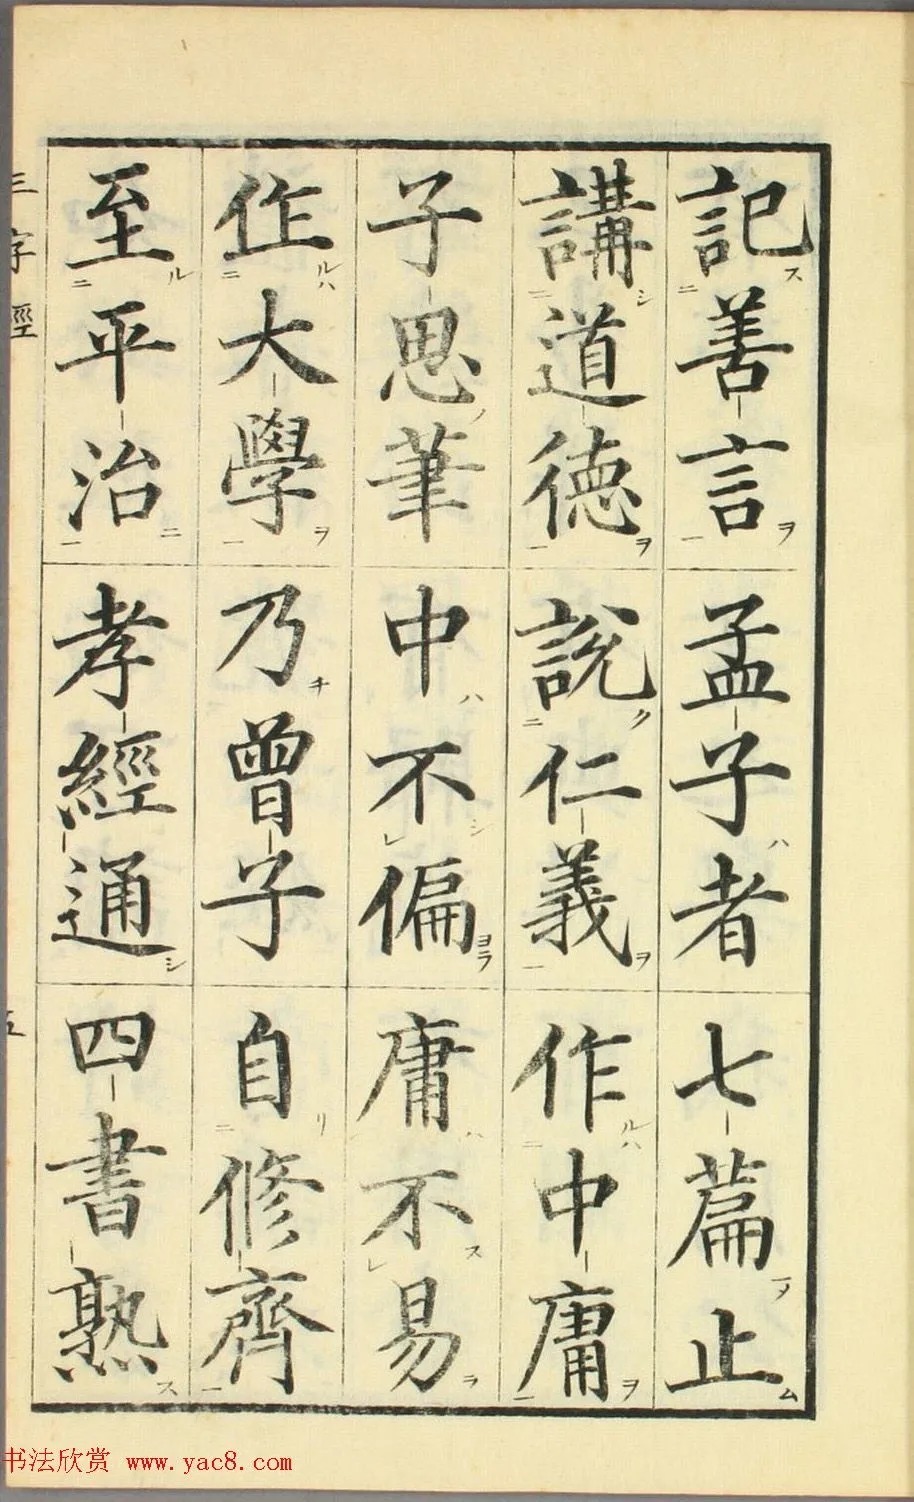 記善言孟子者七篇止
講道德說仁義作中庸
子思筆中不偏庸不易
作大學乃曾子自修齊
至平治孝經通四書熟
三字經
五
书法欣赏 www.yac8.com